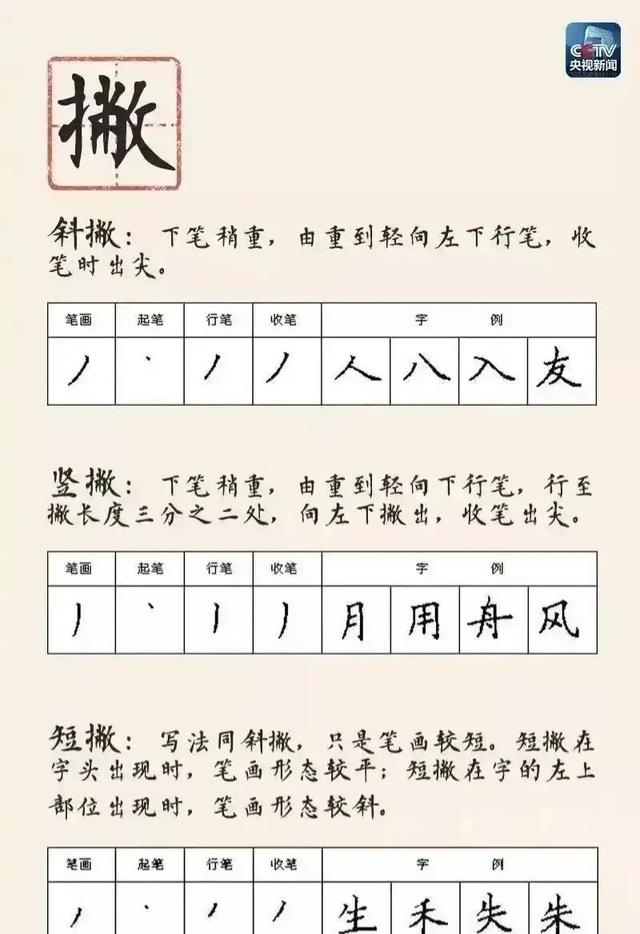 CCTV
央视新闻
撇
斜撇：下笔稍重，由重到轻向左下行笔，收
笔时出尖。
笔画 起笔 行笔 收笔 字 例
丿 丶 丿 丿 人 八 入 友
竖撇：下笔稍重，由重到轻向下行笔，行至
撇长度三分之二处，向左下撇出，收笔出尖。
笔画 起笔 行笔 收笔 字 例
丿 丶 丨 丿 月 用 舟 风
短撇：写法同斜撇，只是笔画较短。短撇在
字头出现时，笔画形态较平；短撇在字的左上
部位出现时，笔画形态较斜。
笔画 起笔 行笔 收笔 字 例
丿 丶 丿 丿 生 禾 失 朱